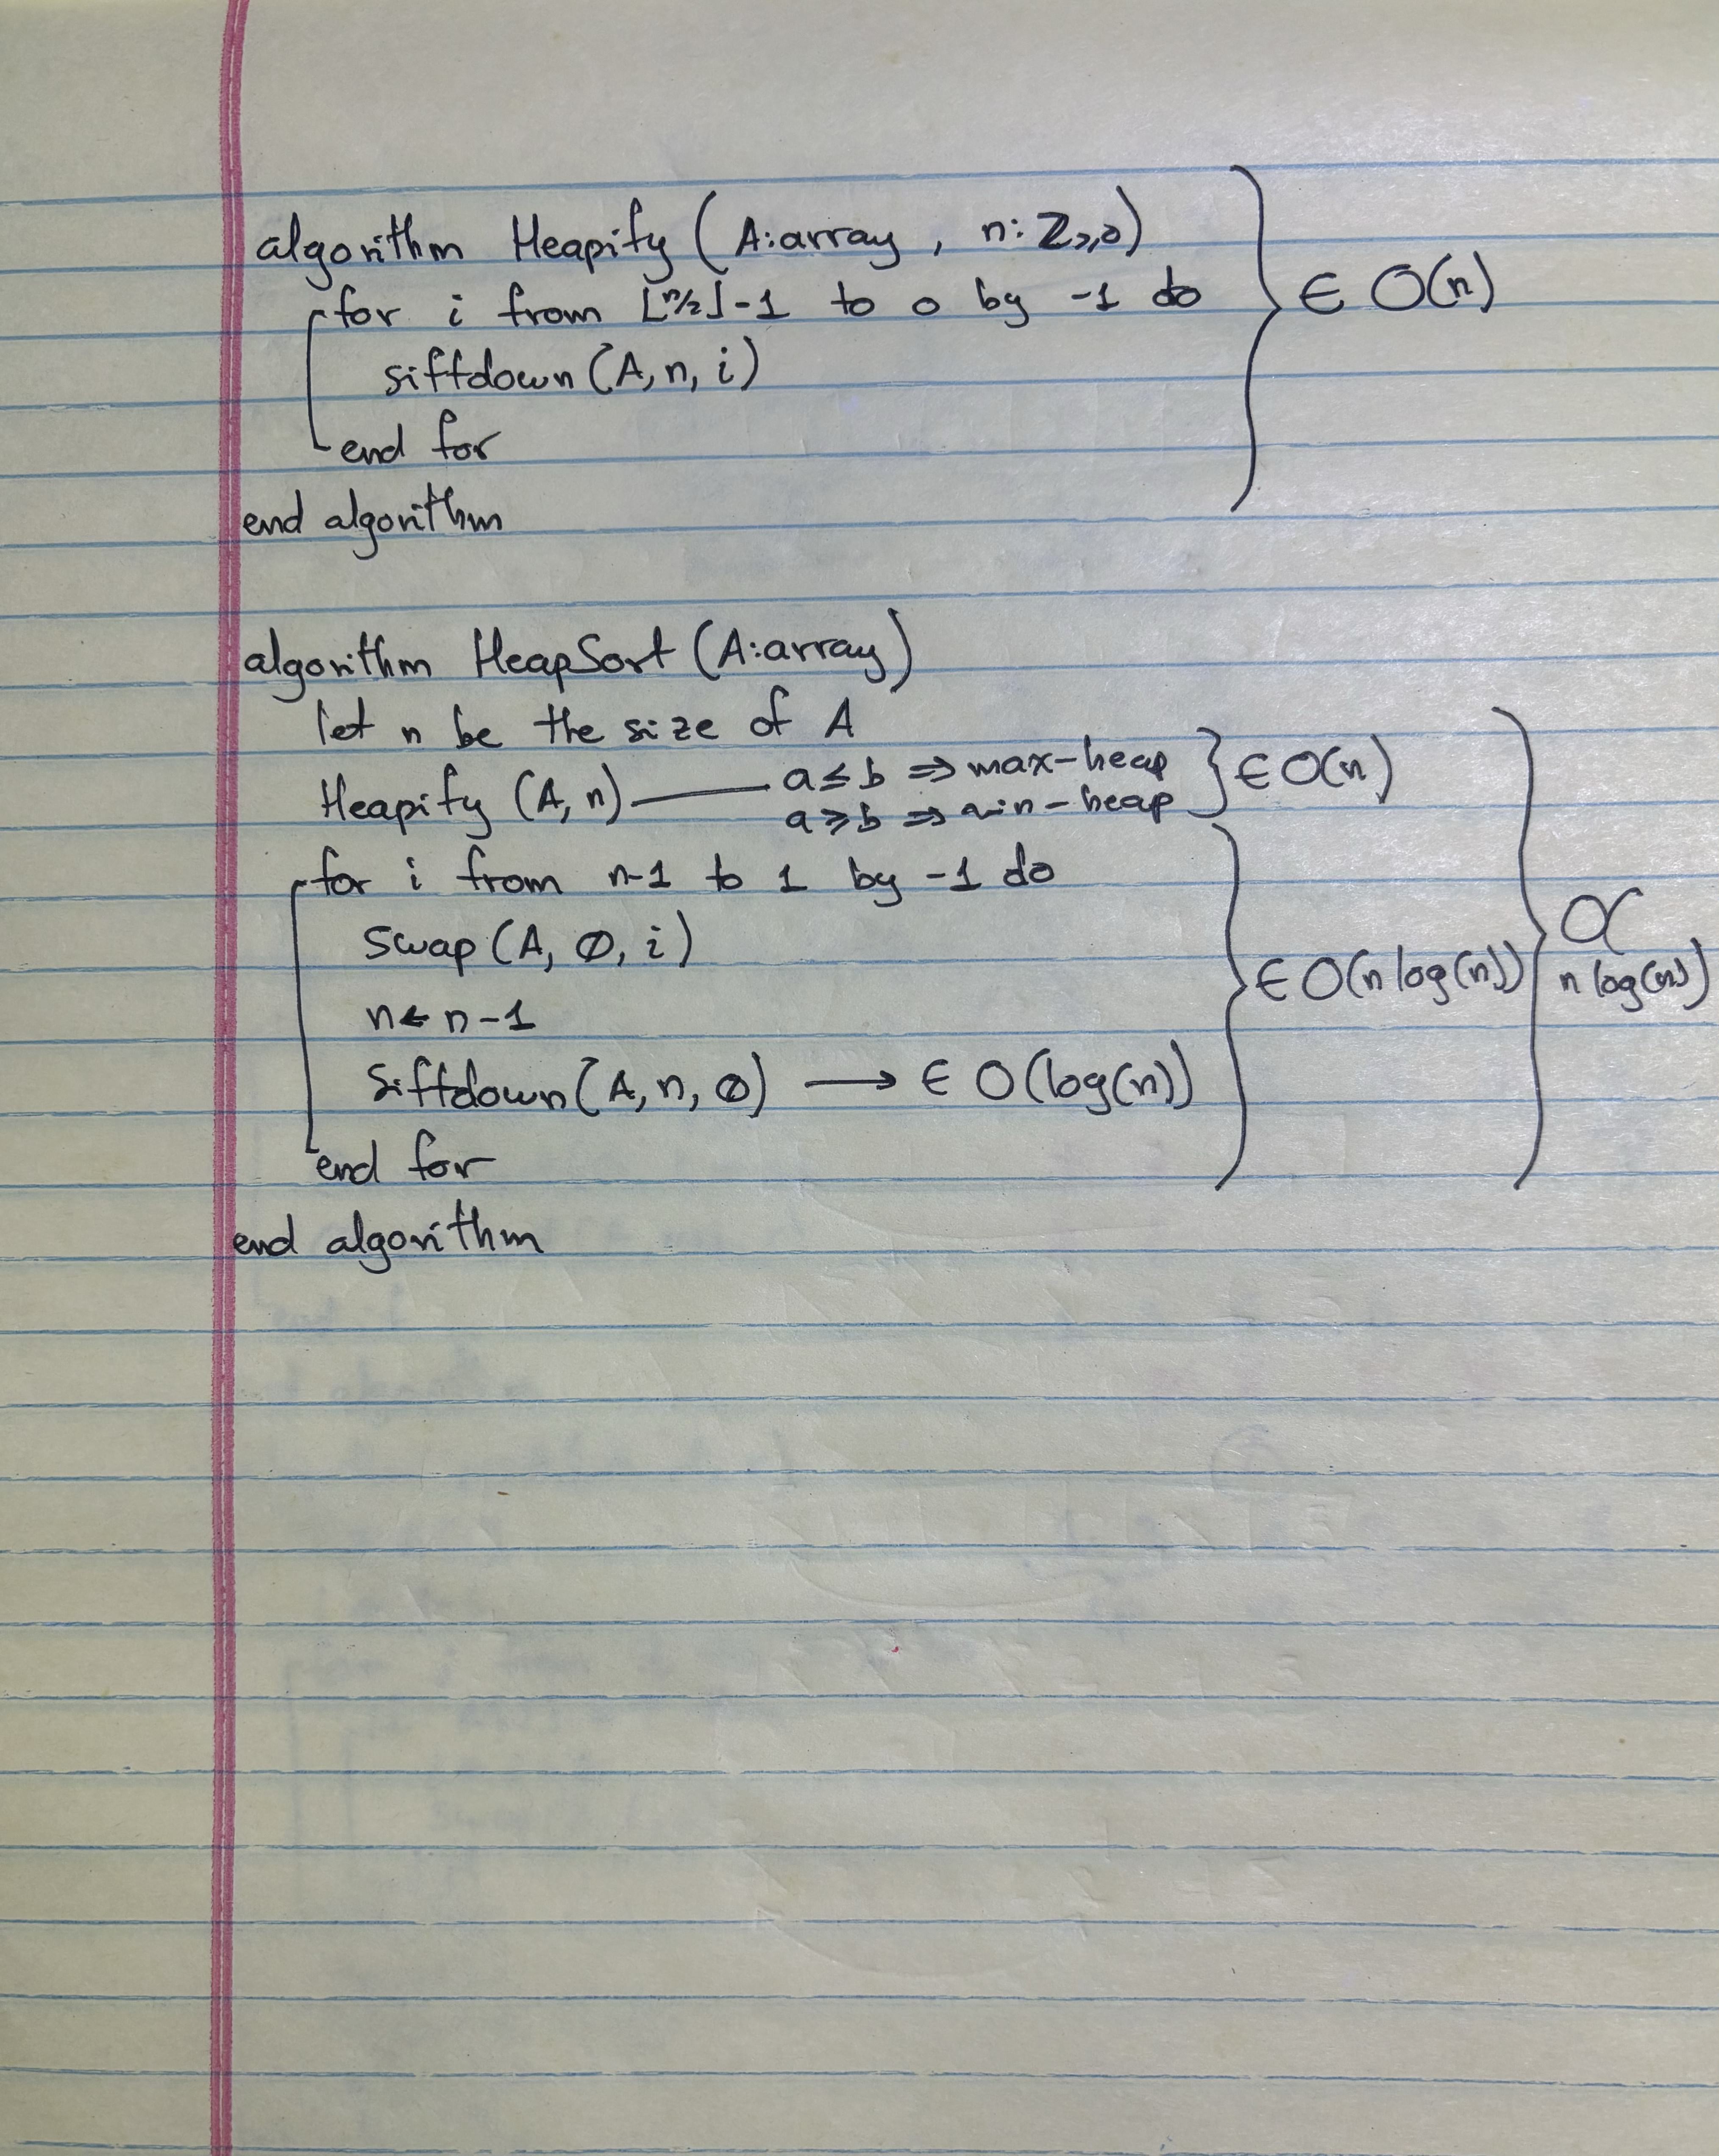 algorithm Heapify (A:array, n: ℤ≥0)
for i from ⌊n/2⌋-1 to 0 by -1 do
siftdown (A, n, i)
end for
end algorithm
∈ O(n)
algorithm HeapSort (A:array)
let n be the size of A
Heapify (A, n) — a ≤ b ⇒ max-heap
a ≥ b ⇒ min-heap
∈ O(n)
for i from n-1 to 1 by -1 do
swap (A, 0, i)
n ← n-1
siftdown (A, n, 0) → ∈ O(log(n))
end for
end algorithm
∈ O(n log(n))
O(
n log(n))